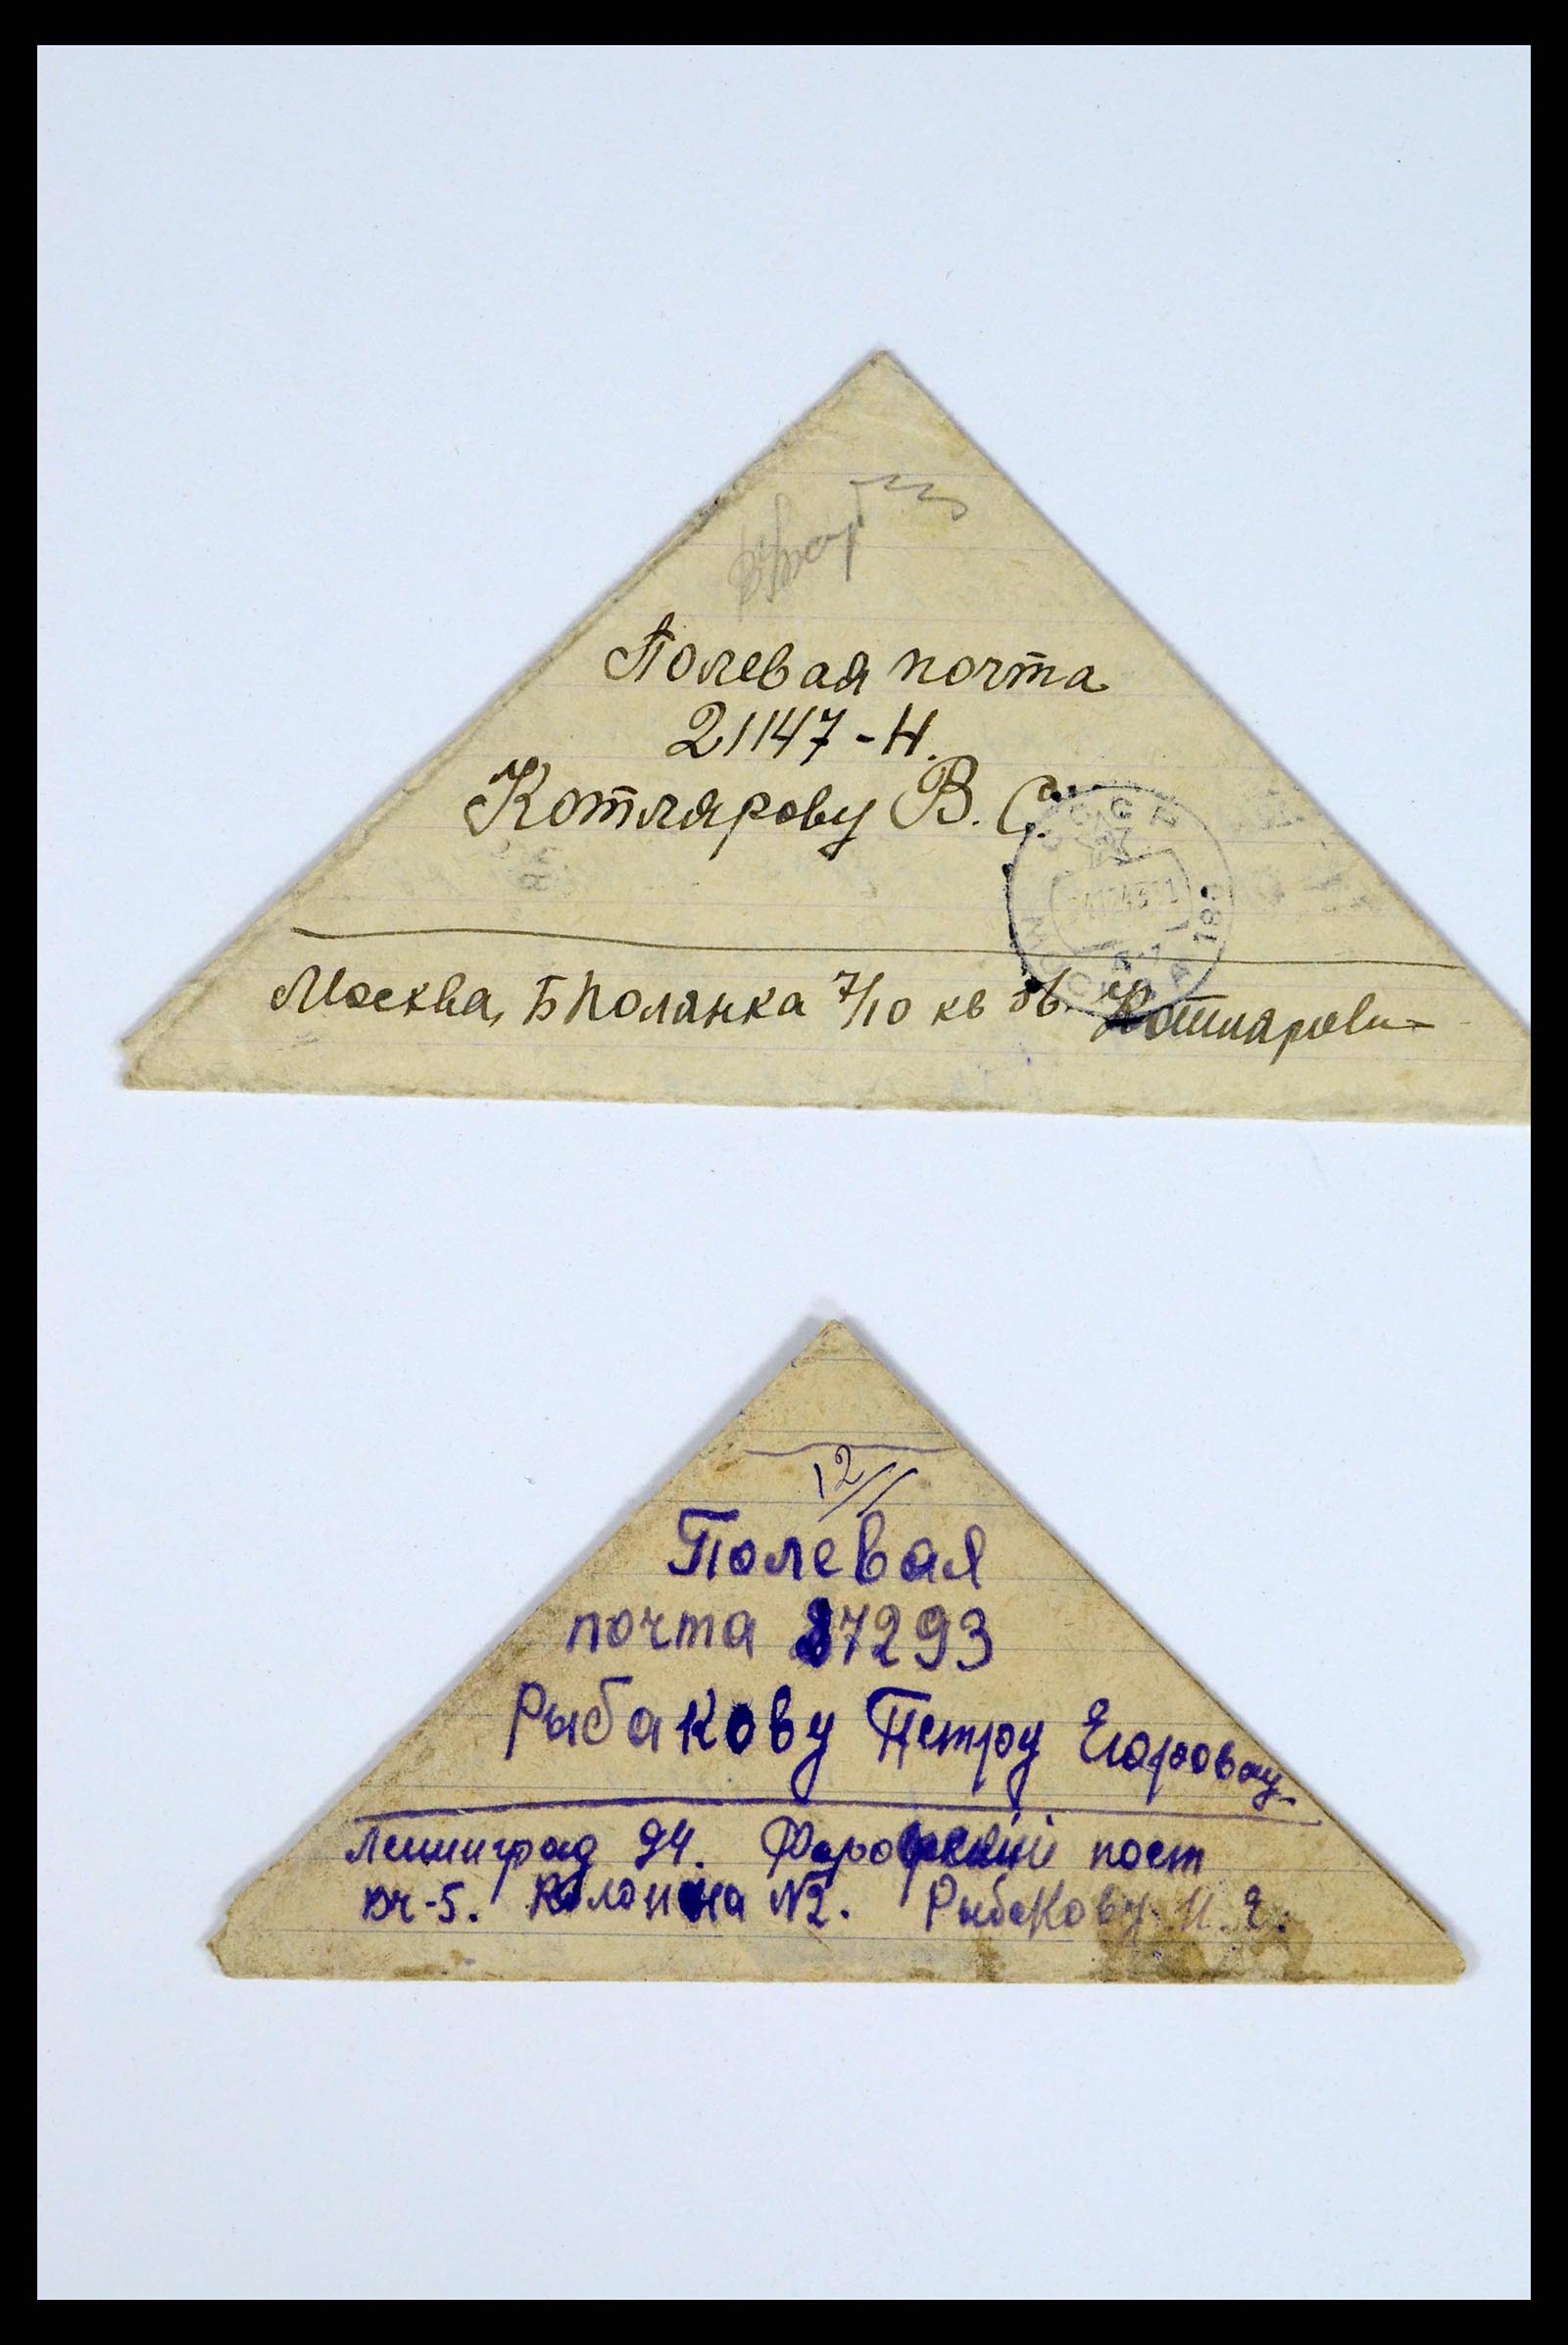 Полевая почта
21147-Н.
Котлярову В. С.
СССР
МОСКВА
Москва, Б Полянка 7/10 кв
12/
Полевая
почта 37293
Рыбакову Петру Егоровичу
Ленинград 94. Фарфоровский пост
ВЧ-5. Колонна №2. Рыбакову И. Е.